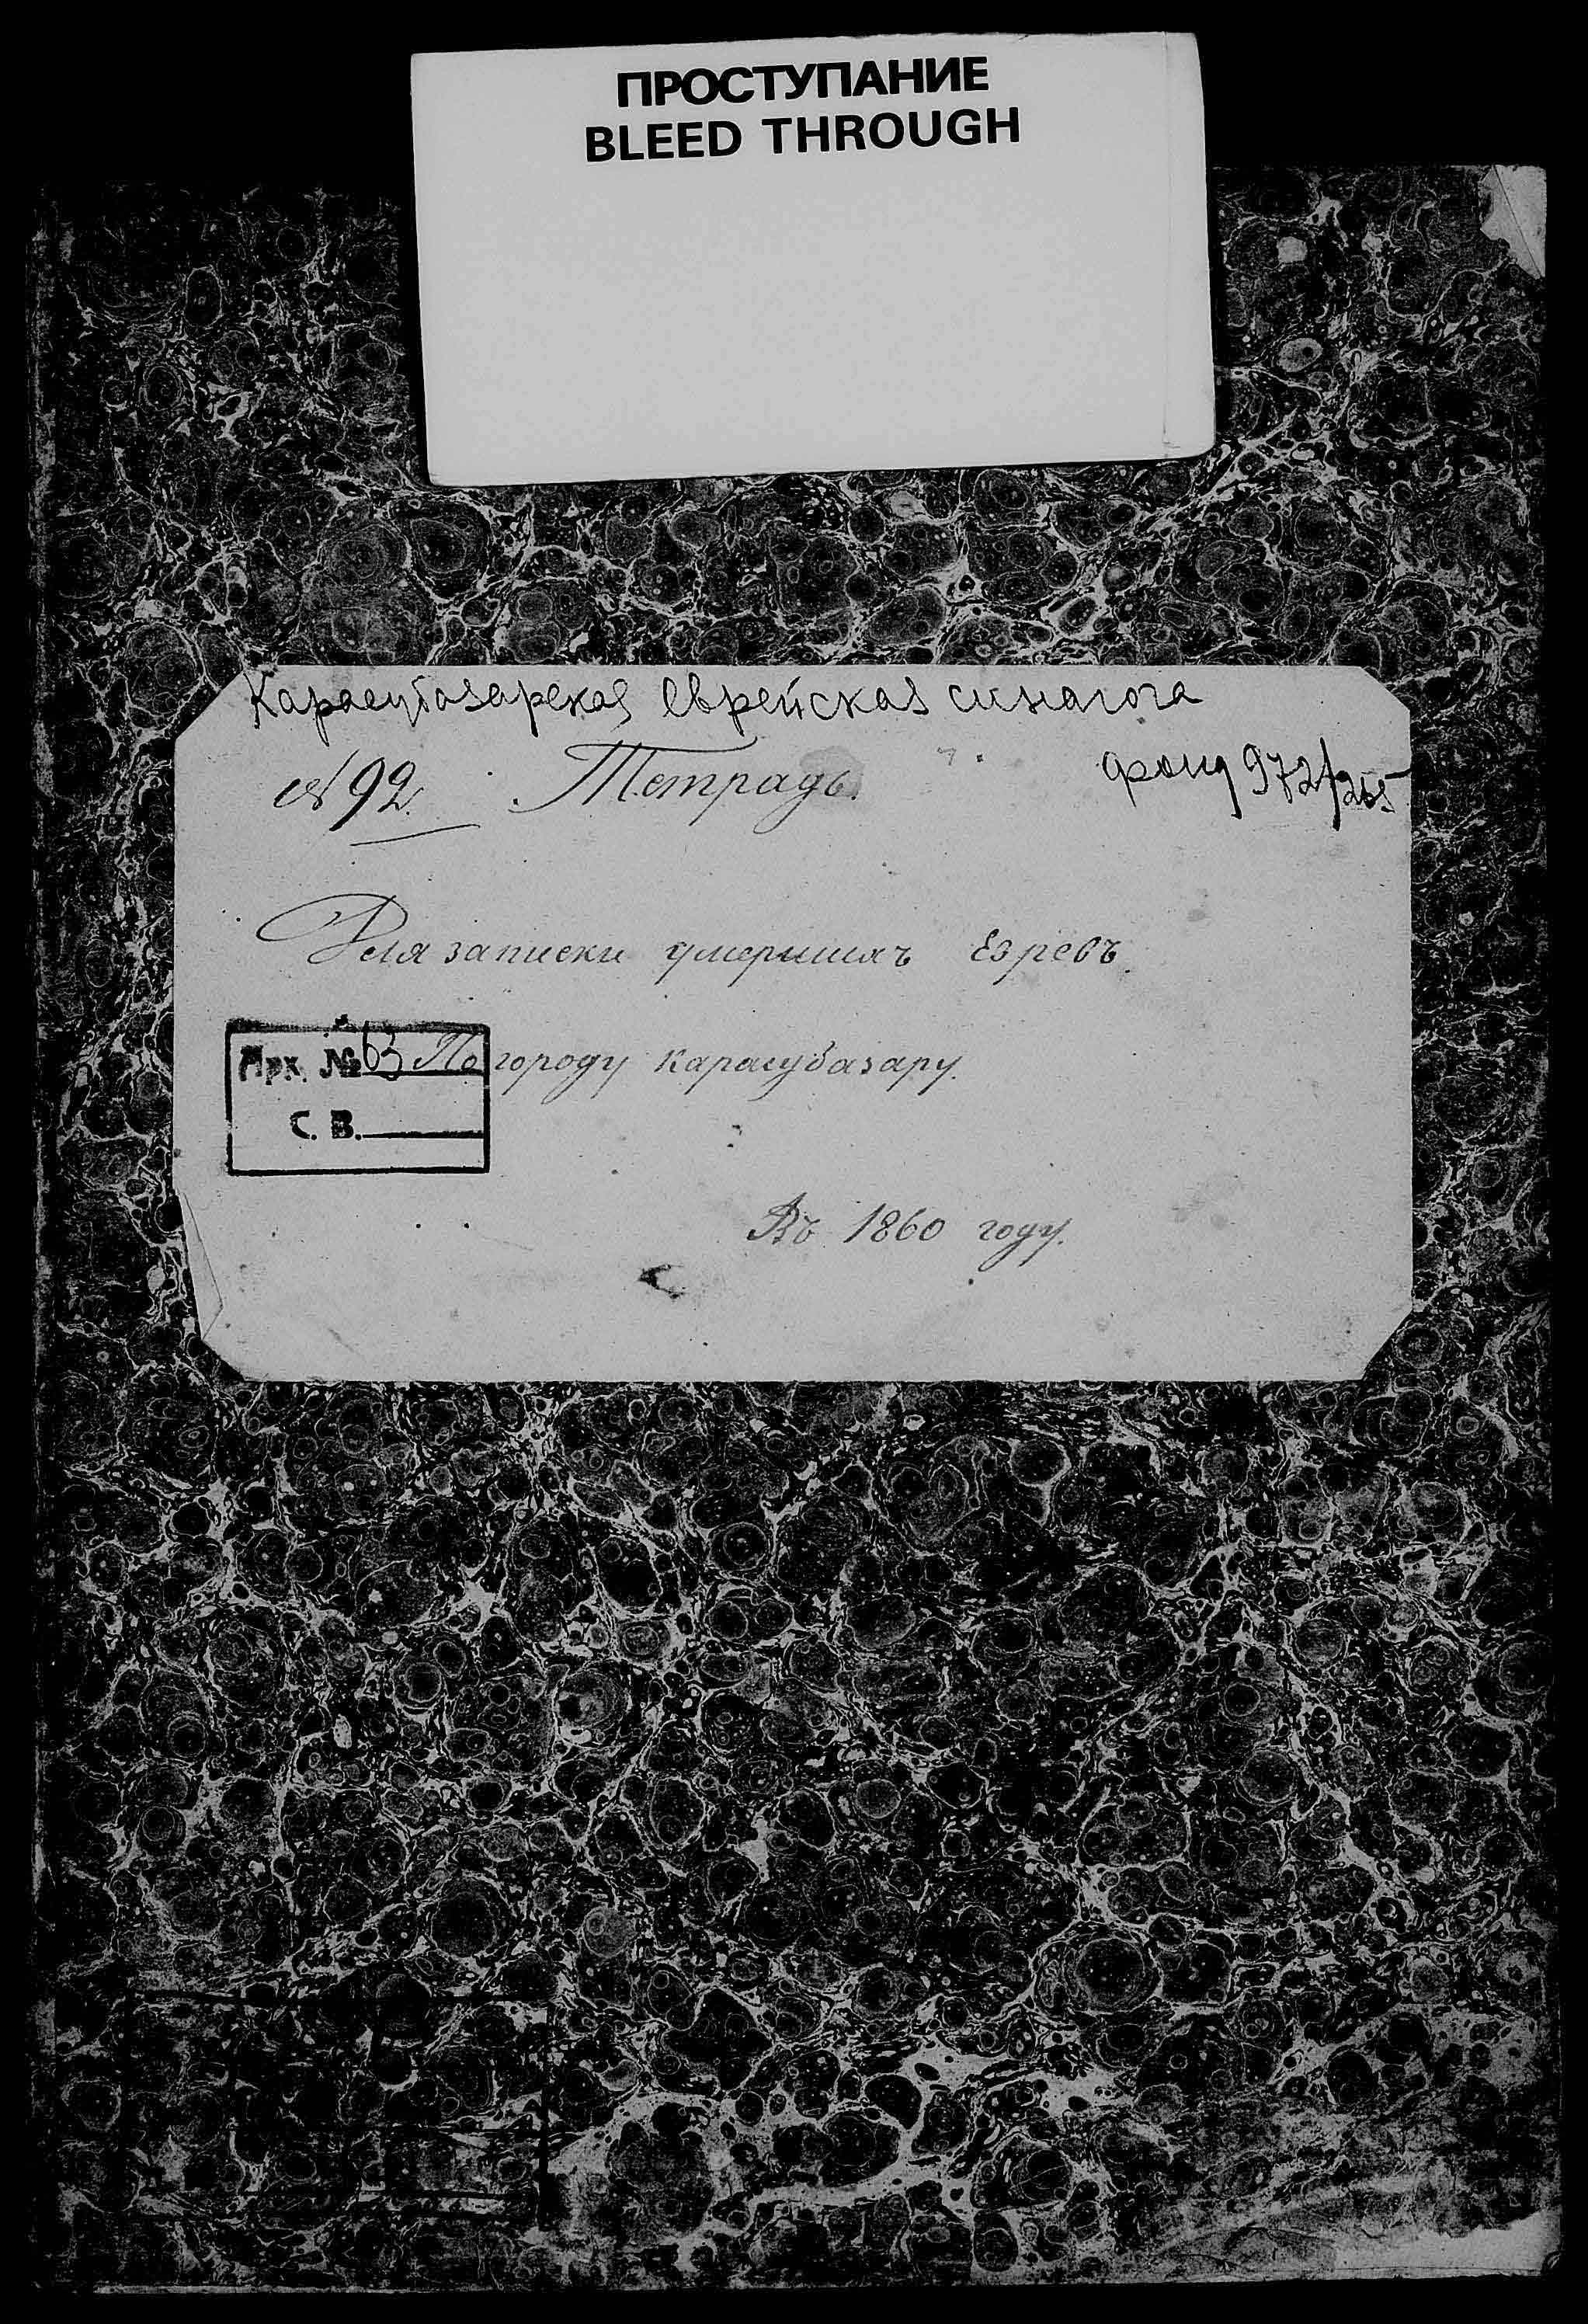 ПРОСТУПАНИЕ
BLEED THROUGH
Карасубазарская еврейская синагога
№ 92. Тетрадь. фонд 972/265
Для записки умершихъ Евревъ.
Арх. № 63 По городу карасубазару.
С. В.
Въ 1860 году.